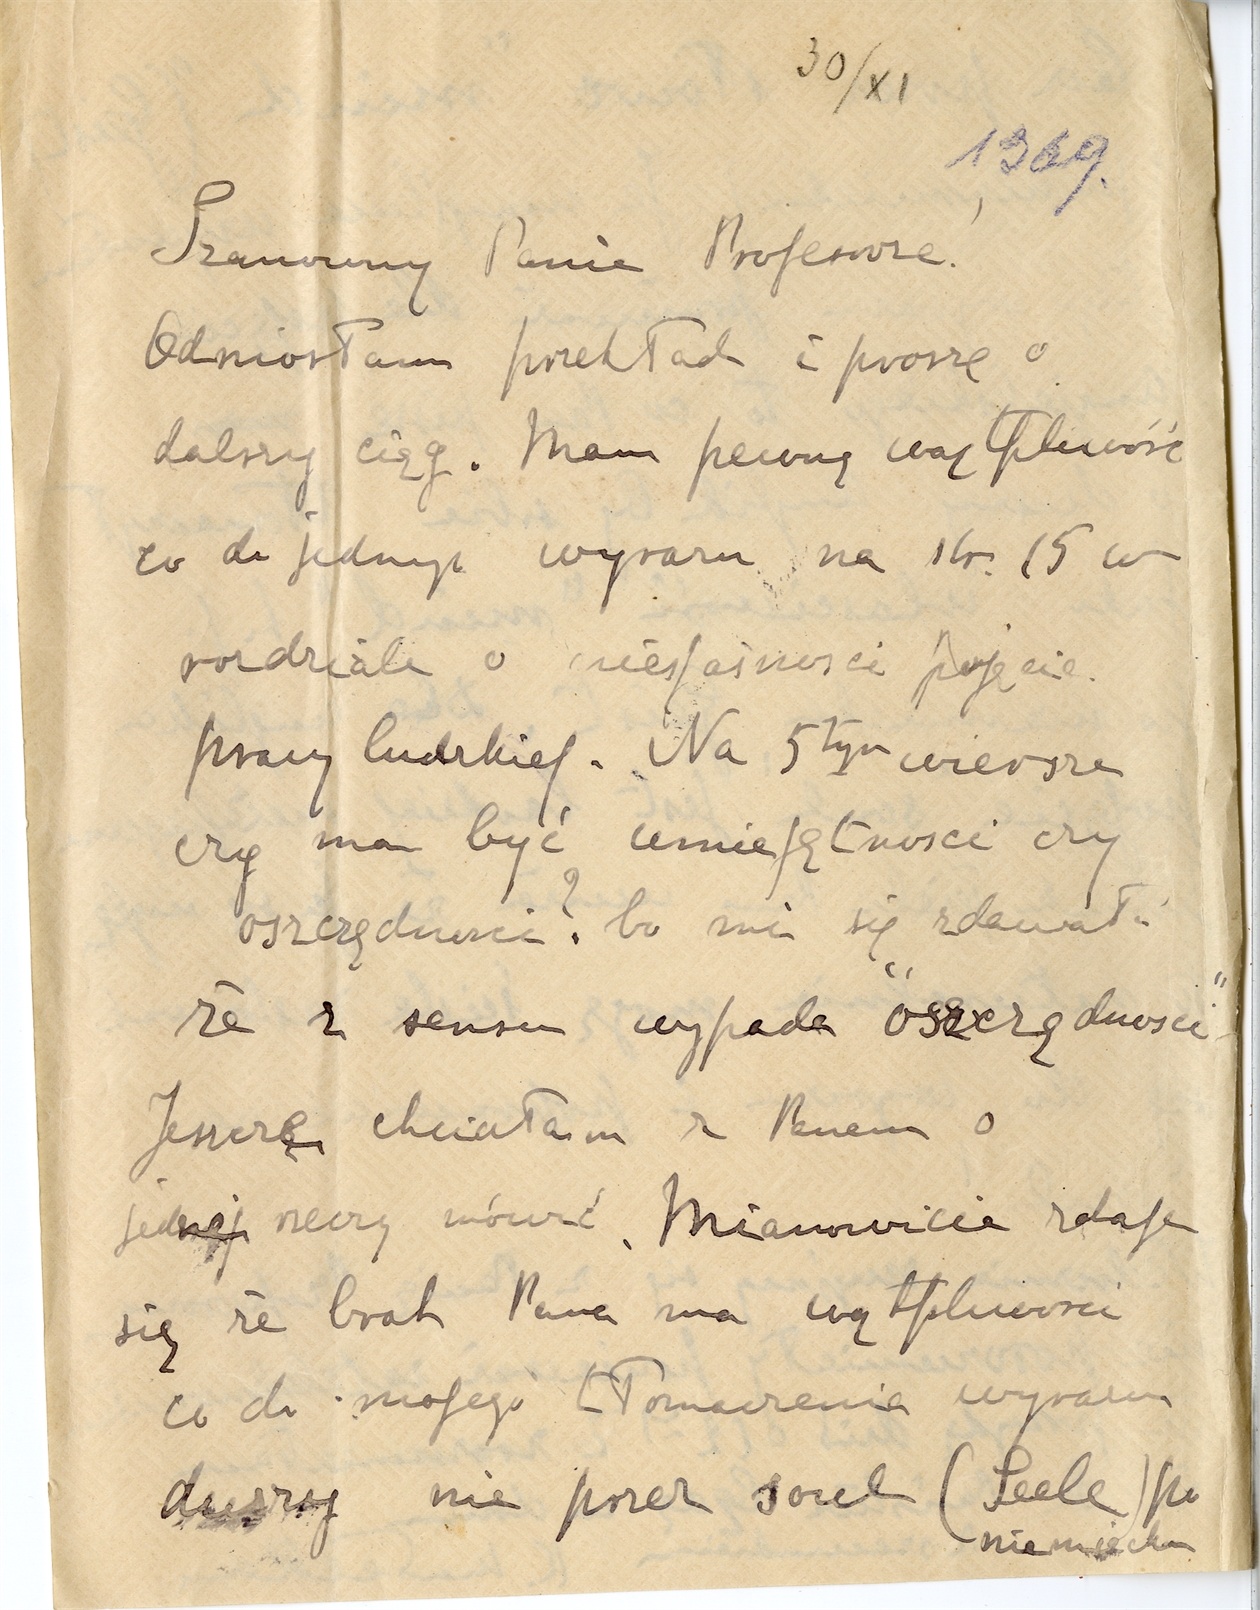 30/XI
1369.
Szanowny Panie Profesorze!
Odniosłam przekład i proszę o
dalszy ciąg. Mam pewną wątpliwość
co do jednego wyrazu na str. 15 w
rozdziale o niejasności pojęcia
pracy ludzkiej. Na 5tym wierszu
czy ma być umiejętności czy
oszczędności? bo mi się zdawało
że z sensu wypada "oszczędności"
Jeszcze chciałam z Panem o
jednej rzeczy mówić. Mianowicie zdaje
się że brat Pana ma wątpliwości
co do mojego tłomaczenia wyrazu
duszy nie przez soul (Seele) po
niemiecku